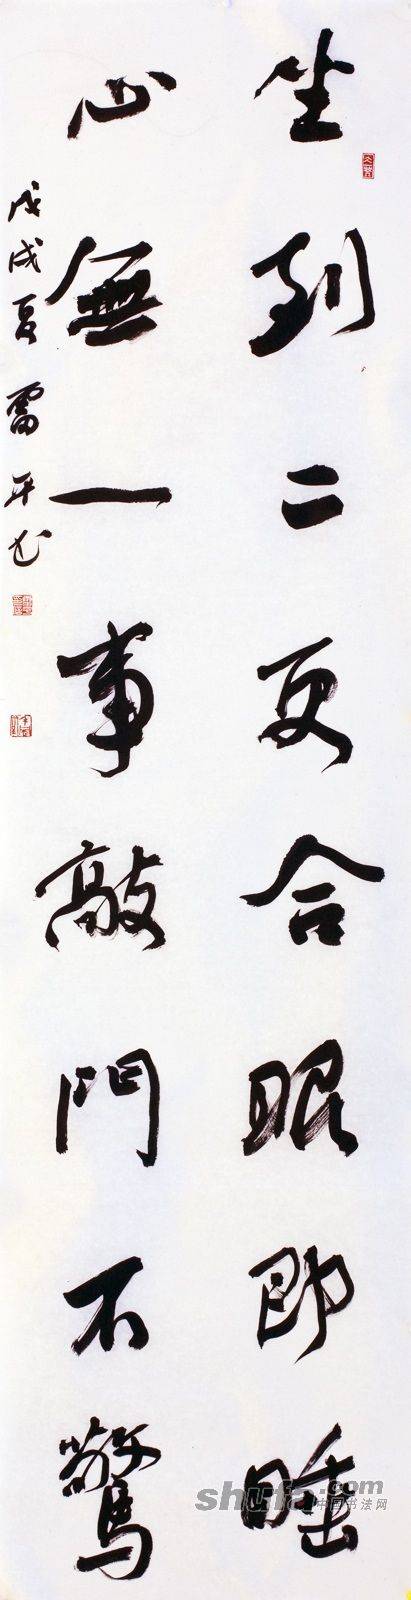 坐到二更合眼即睡
心無一事敲門不驚
戊戌夏雷平书
shufa.com
中国书法网